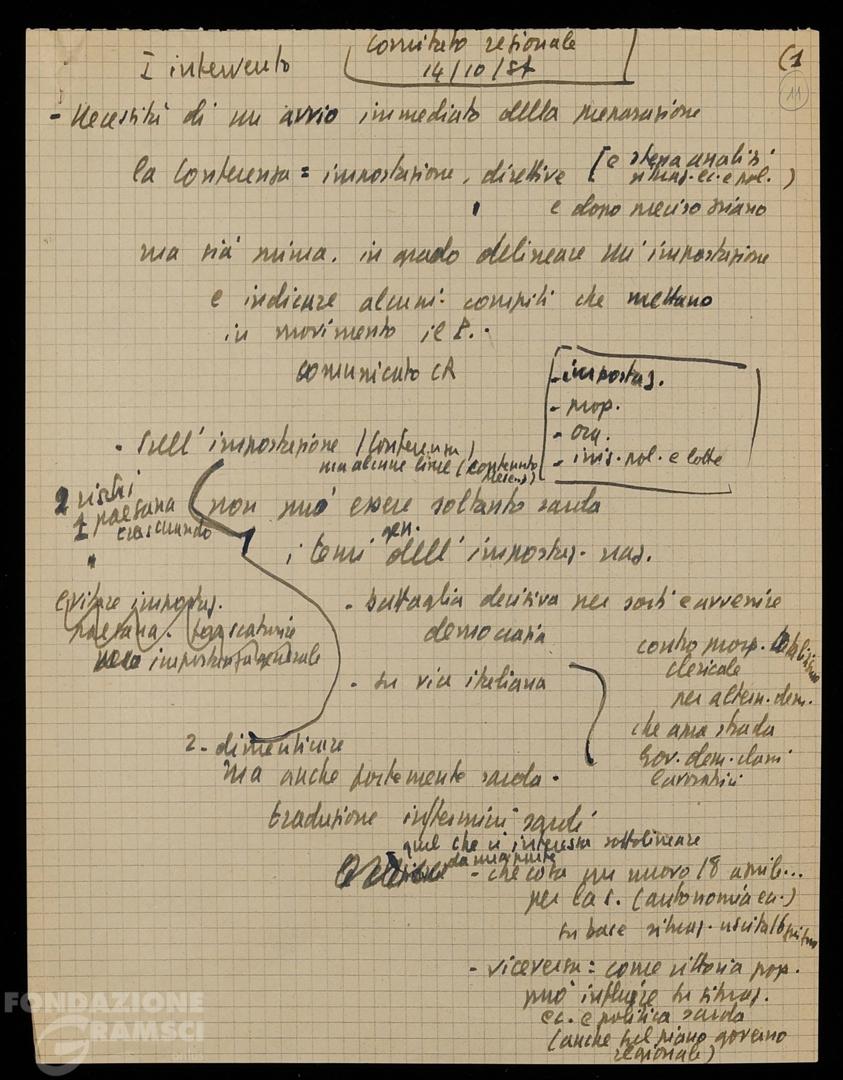 I intervento
Comitato regionale
14/10/57
(1
11
- Necessità di un avvio immediato della preparazione
la Conferenza = impostazione, direttive [e stessa analisi
situaz. ec. e pol.)
e dopo preciso piano
ma già prima. in grado delineare un'impostazione
e indicare alcuni compiti che mettano
in movimento il P..
comunicato CR
- impostaz.
- prop.
- org.
- iniz. pol. e lotte
- Sull'impostazione (Conferenza)
ma alcune linee (contenuto
2 rischi
1 paesana
trascurando
non può essere soltanto sarda
gen.
i temi dell'impostaz. naz.
evitare impostaz.
paesana.
impostaz. generale
- battaglia decisiva per sorti e avvenire
democrazia
contro prosp.
clericale
per altern. dem.
che apra strada
Gov. dem. classi
lavoratrici
- su via italiana
2 - dimenticare
ma anche fortemente sarda -
traduzione in termini sardi
quel che ci interessa sottolineare
da una parte
- che cosa un nuovo 18 aprile...
per la S. (autonomia ec.)
su base situaz. uscita
- viceversa = come vittoria pop.
può influire su situaz.
ec. e politica sarda
(anche sul piano governo
regionale)
FONDAZIONE
GRAMSCI